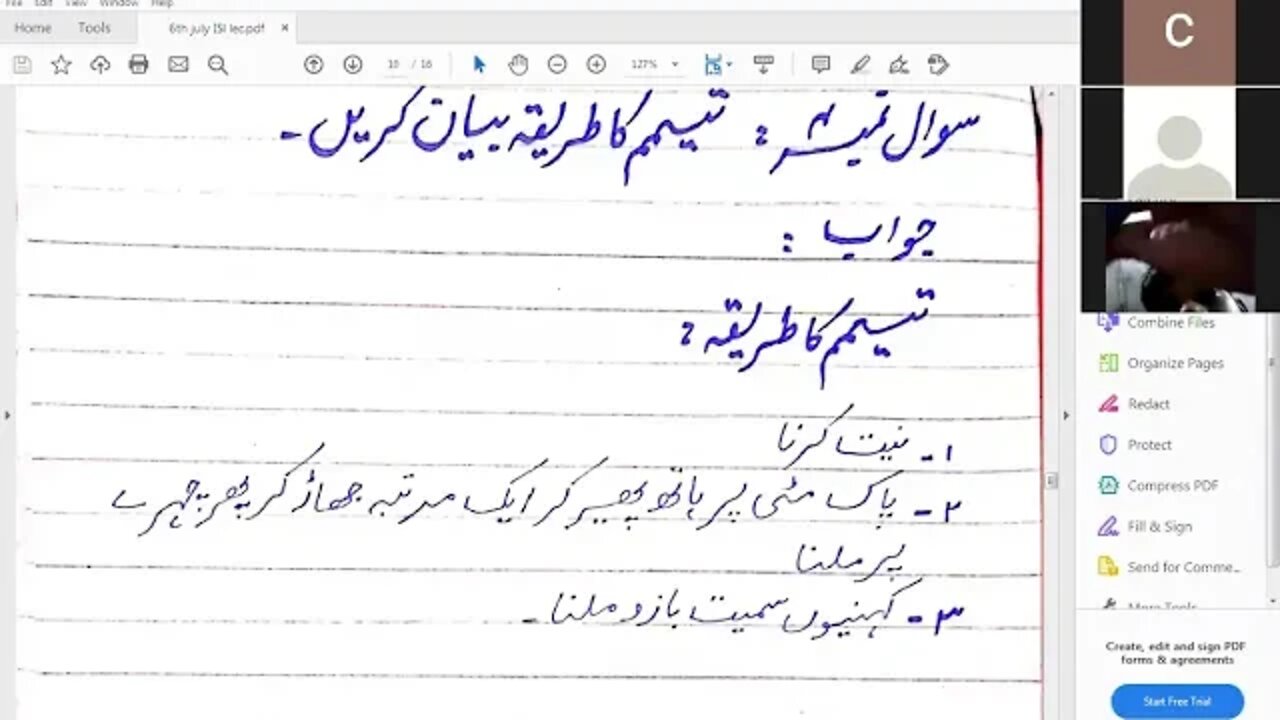 File Edit View Window Help
Home Tools 6th july ISI lec.pdf ×
10 / 16 127%
C
سوال نمبر ۸ : تیمم کا طریقہ بیان کریں۔
جواب :
تیمم کا طریقہ :
۱۔ نیت کرنا
۲۔ پاک مٹی پر ہاتھ پھیر کر ایک مرتبہ جھاڑ کر پھر چہرے
پر ملنا
۳۔ کہنیوں سمیت بازو ملنا۔
Combine Files
Organize Pages
Redact
Protect
Compress PDF
Fill & Sign
Send for Comme...
More Tools
Create, edit and sign PDF
forms & agreements
Start Free Trial